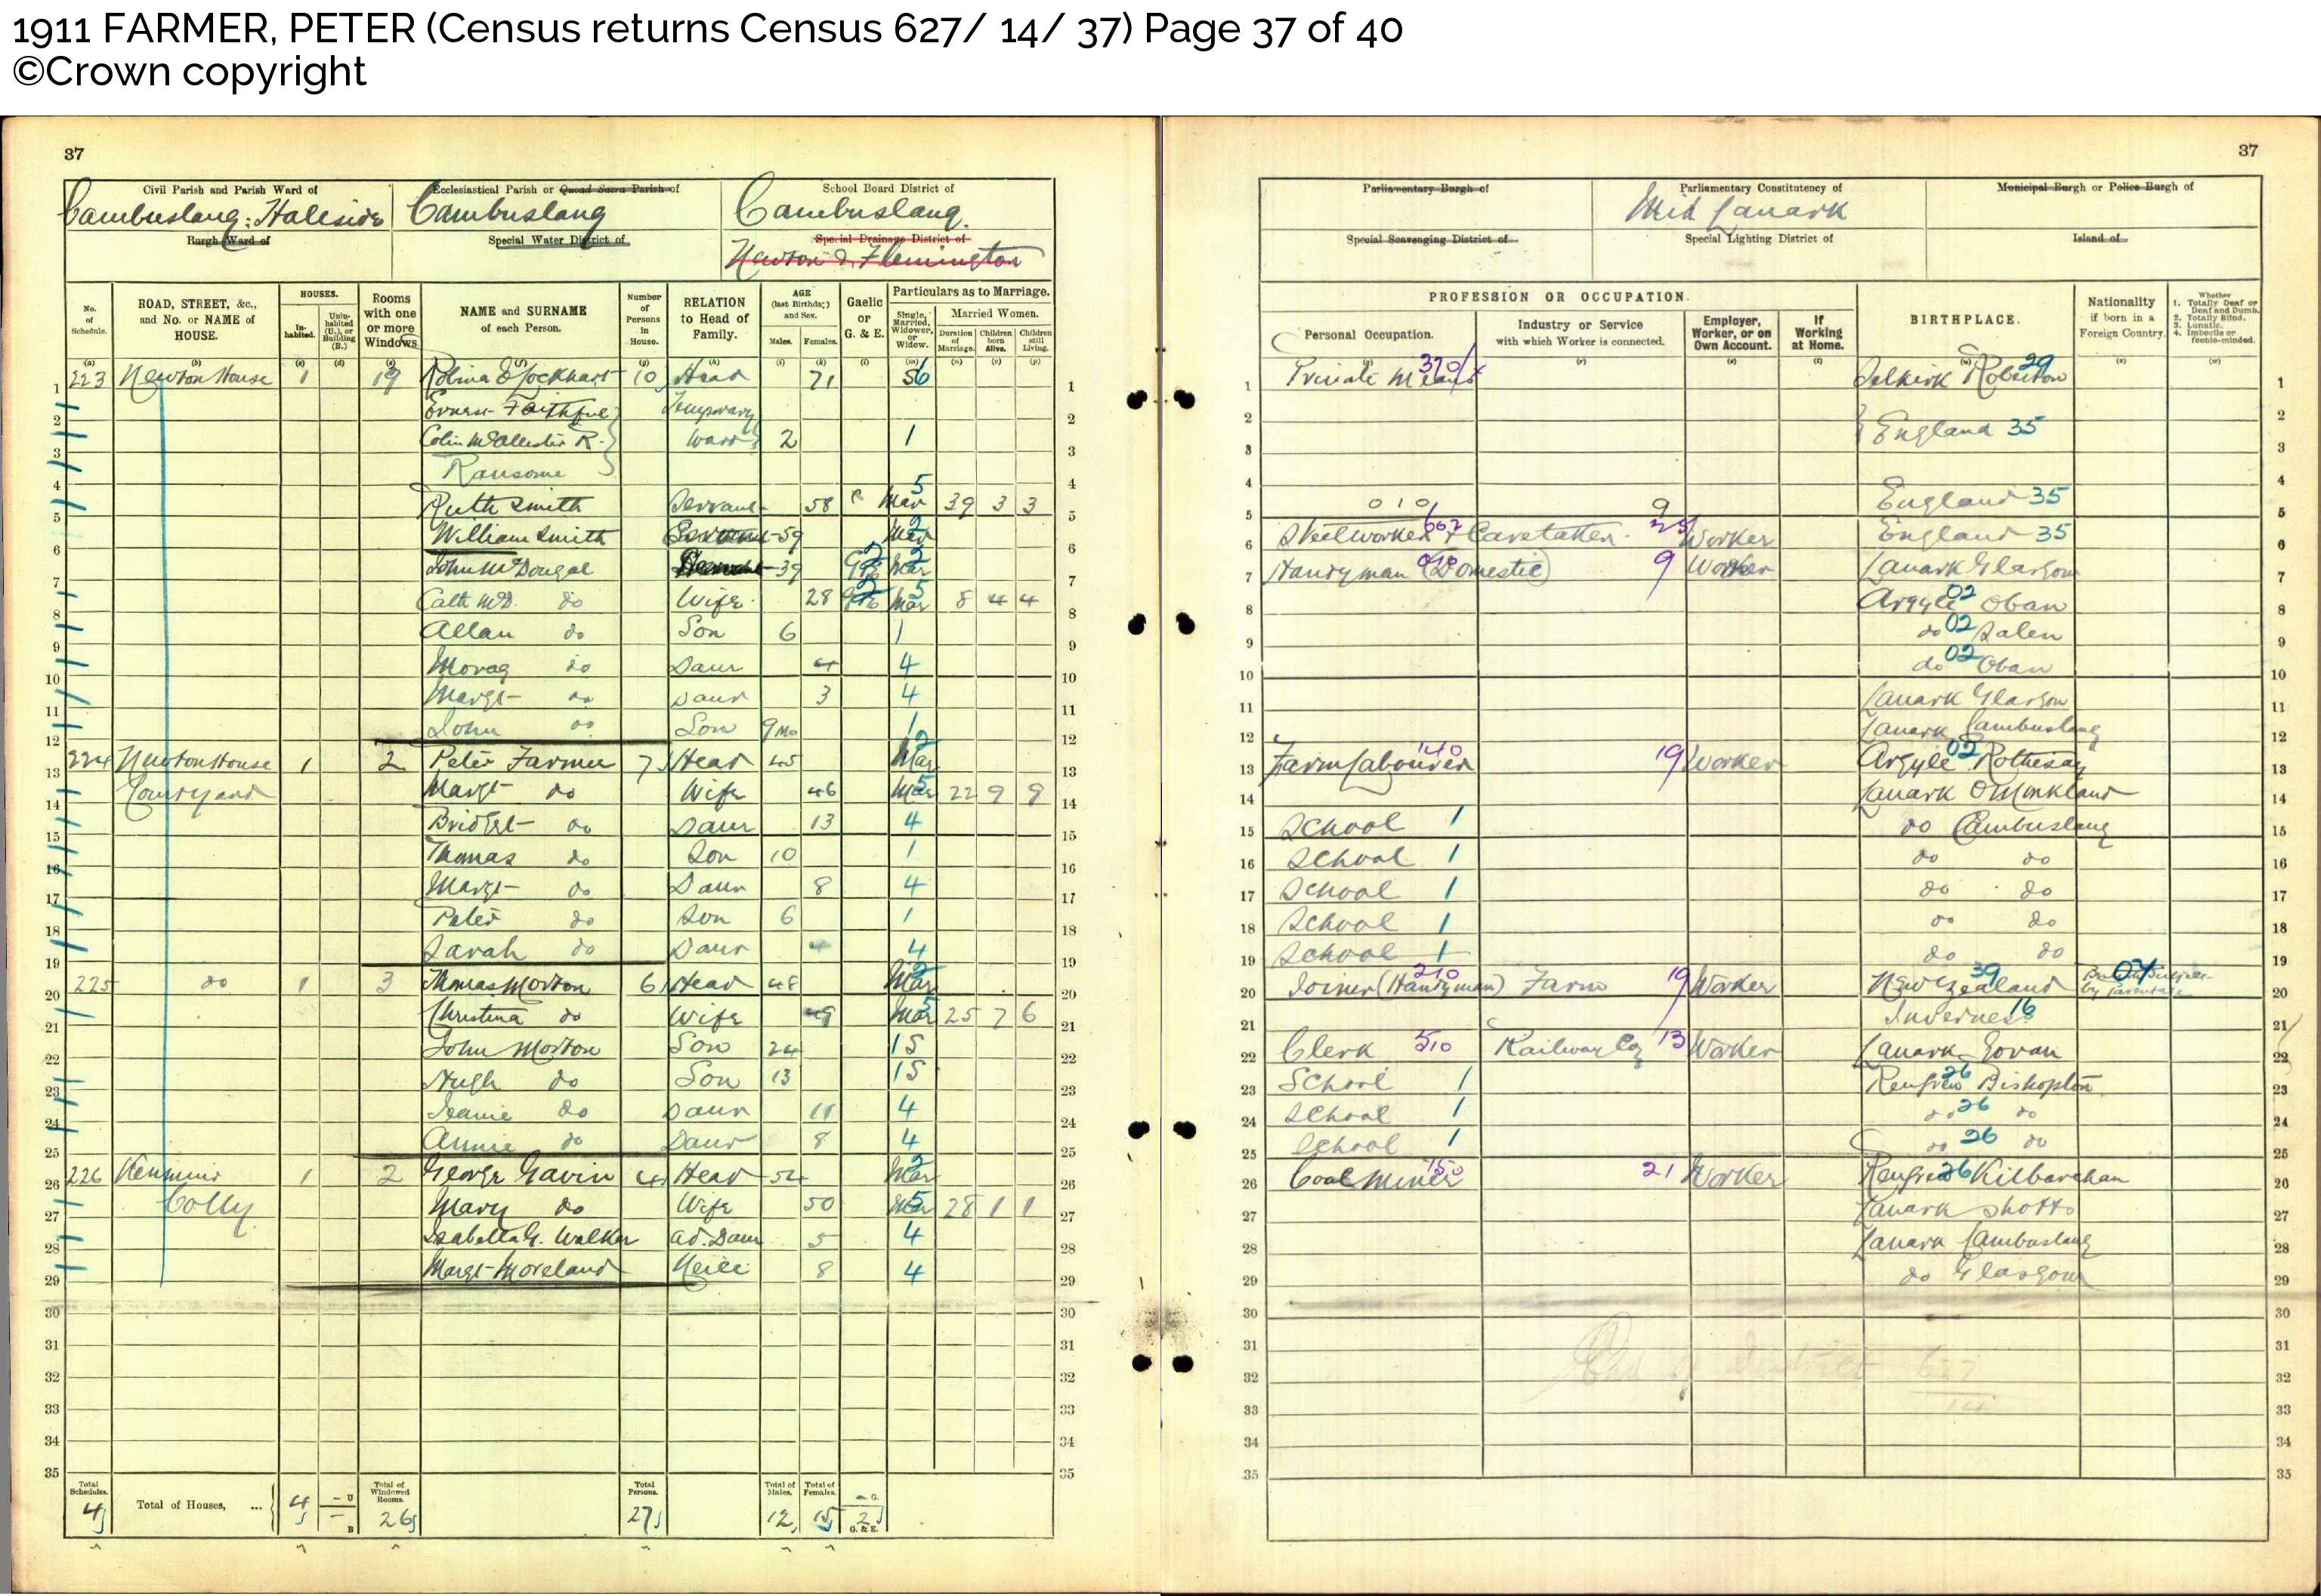 1911 FARMER, PETER (Census returns Census 627/ 14/ 37) Page 37 of 40
©Crown copyright
37
Civil Parish and Parish Ward of
Cambuslang: Hallside
Burgh Ward of
Ecclesiastical Parish or Quoad Sacra Parish of
Cambuslang
Special Water District of
School Board District of
Cambuslang.
Special Drainage District of
Newton & Flemington
No. of Schedule.
ROAD, STREET, &c., and No. or NAME of HOUSE.
HOUSES.
In-habited.
Unin-habited (U.), or Building (B.)
Rooms with one or more Windows
NAME and SURNAME of each Person.
Number of Persons in House.
RELATION to Head of Family.
AGE (last Birthday) and Sex.
Males.
Females.
Gaelic or G. & E.
Particulars as to Marriage.
Single, Married, Widower, or Widow.
Married Women.
Duration of Marriage.
Children born Alive.
Children still Living.
1 223 Newton House 1 19 Robina E Lockhart 10 Head 71 S6 1
2 Faithfull Temporary 2
3 Colin McAllester R. 2 1 3
4 Ransome 4
5 Ruth Smith Servant 58 Mar 5 39 3 3 5
6 William Smith 59 Mar 2 6
7 John McDougal 39 G&E 2 Mar 2 7
8 Cath McD. do Wife 28 G&E 2 Mar 5 8 4 4 8
9 Allan do Son 6 1 9
10 Morag do Daur 4 4 10
11 Margt do Daur 3 4 11
12 John do Son 9 Mo 1 12
13 224 Newton House 1 2 Peter Farmer 7 Head 45 Mar 2 13
14 Courtyard Margt do Wife 46 Mar 5 22 9 9 14
15 Bridget do Daur 13 4 15
16 Thomas do Son 10 1 16
17 Margt do Daur 8 4 17
18 Peter do Son 6 1 18
19 Sarah do Daur 4 19
20 225 do 1 3 Thomas Morton 6 Head 48 Mar 2 20
21 Christina do Wife 49 Mar 5 25 7 6 21
22 John Morton Son 24 1 S 22
23 Hugh do Son 13 1 S 23
24 Jeanie do Daur 11 4 24
25 Annie do Daur 8 4 25
26 226 Kenmuir 1 2 George Gavin 4 Head 54 Mar 2 26
27 Colly Mary do Wife 50 Mar 5 28 1 1 27
28 Isabella G. Walker ad. Daur 5 4 28
29 Margt Moreland Neice 8 4 29
30 30
31 31
32 32
33 33
34 34
35 35
Total Schedules. 4
Total of Houses, ... 4 – U – B
Total of Windowed Rooms. 26
Total Persons. 27
Total of Males. 12
Total of Females. 15
– G. 2 G. & E.
37
Parliamentary Burgh of
Parliamentary Constituency of
Mid Lanark
Municipal Burgh or Police Burgh of
Special Scavenging District of
Special Lighting District of
Island of
PROFESSION OR OCCUPATION.
Personal Occupation.
Industry or Service with which Worker is connected.
Employer, Worker, or on Own Account.
If Working at Home.
BIRTHPLACE.
Nationality if born in a Foreign Country.
Whether 1. Totally Deaf or Deaf and Dumb. 2. Totally Blind. 3. Lunatic. 4. Imbecile or feeble-minded.
1 Private Means 370 Selkirk Roberton 29 1
2 England 35 2
3 3
4 4
5 010 9 England 35 5
6 Steelworker 662 & Caretaker 25 Worker England 35 6
7 Handyman (Domestic) 010 9 Worker Lanark Glasgow 7
8 Argyle 02 Oban 8
9 do 02 Salen 9
10 do 02 Oban 10
11 Lanark Glasgow 11
12 Lanark Cambuslang 12
13 Farm Labourer 140 19 Worker Argyle 02 Rothesay 13
14 Lanark O Monkland 14
15 School 1 do Cambuslang 15
16 School 1 do do 16
17 School 1 do do 17
18 School 1 do do 18
19 School 1 do do 19
20 Joiner (Handyman) 210 Farm 19 Worker New Zealand 39 British Subject by parentage 07 20
21 Inverness 16 21
22 Clerk 510 Railway Coy 13 Worker Lanark Govan 22
23 School 1 Renfrew 26 Bishopton 23
24 School 1 do 26 do 24
25 School 1 do 26 do 25
26 Coal Miner 150 21 Worker Renfrew 26 Kilbarchan 26
27 Lanark Shotts 27
28 Lanark Cambuslang 28
29 do Glasgow 29
30 30
31 31
End of District 627
32 32
33 14 33
34 34
35 35